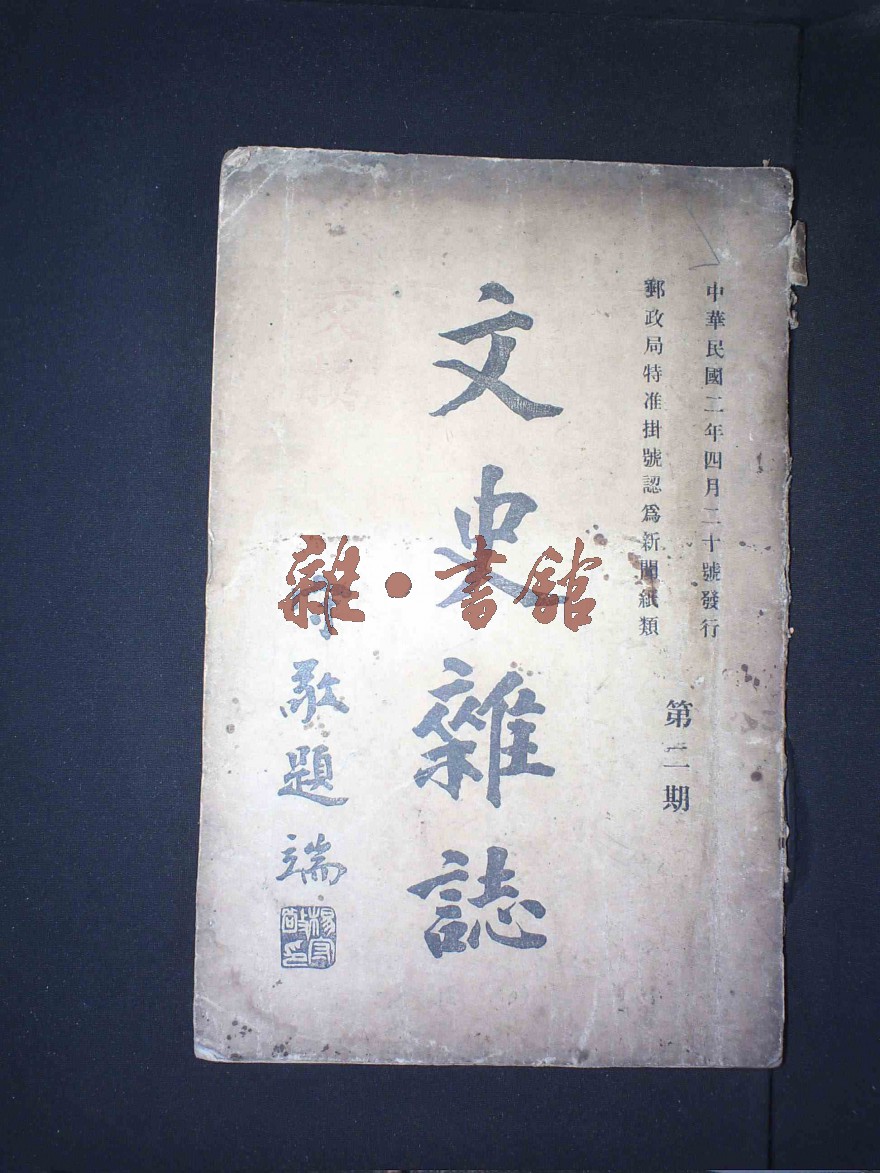 中華民國二年四月二十號發行
郵政局特准掛號認爲新聞紙類
第二期
文史雜誌
守敬題端
楊守敬印
雜·書館